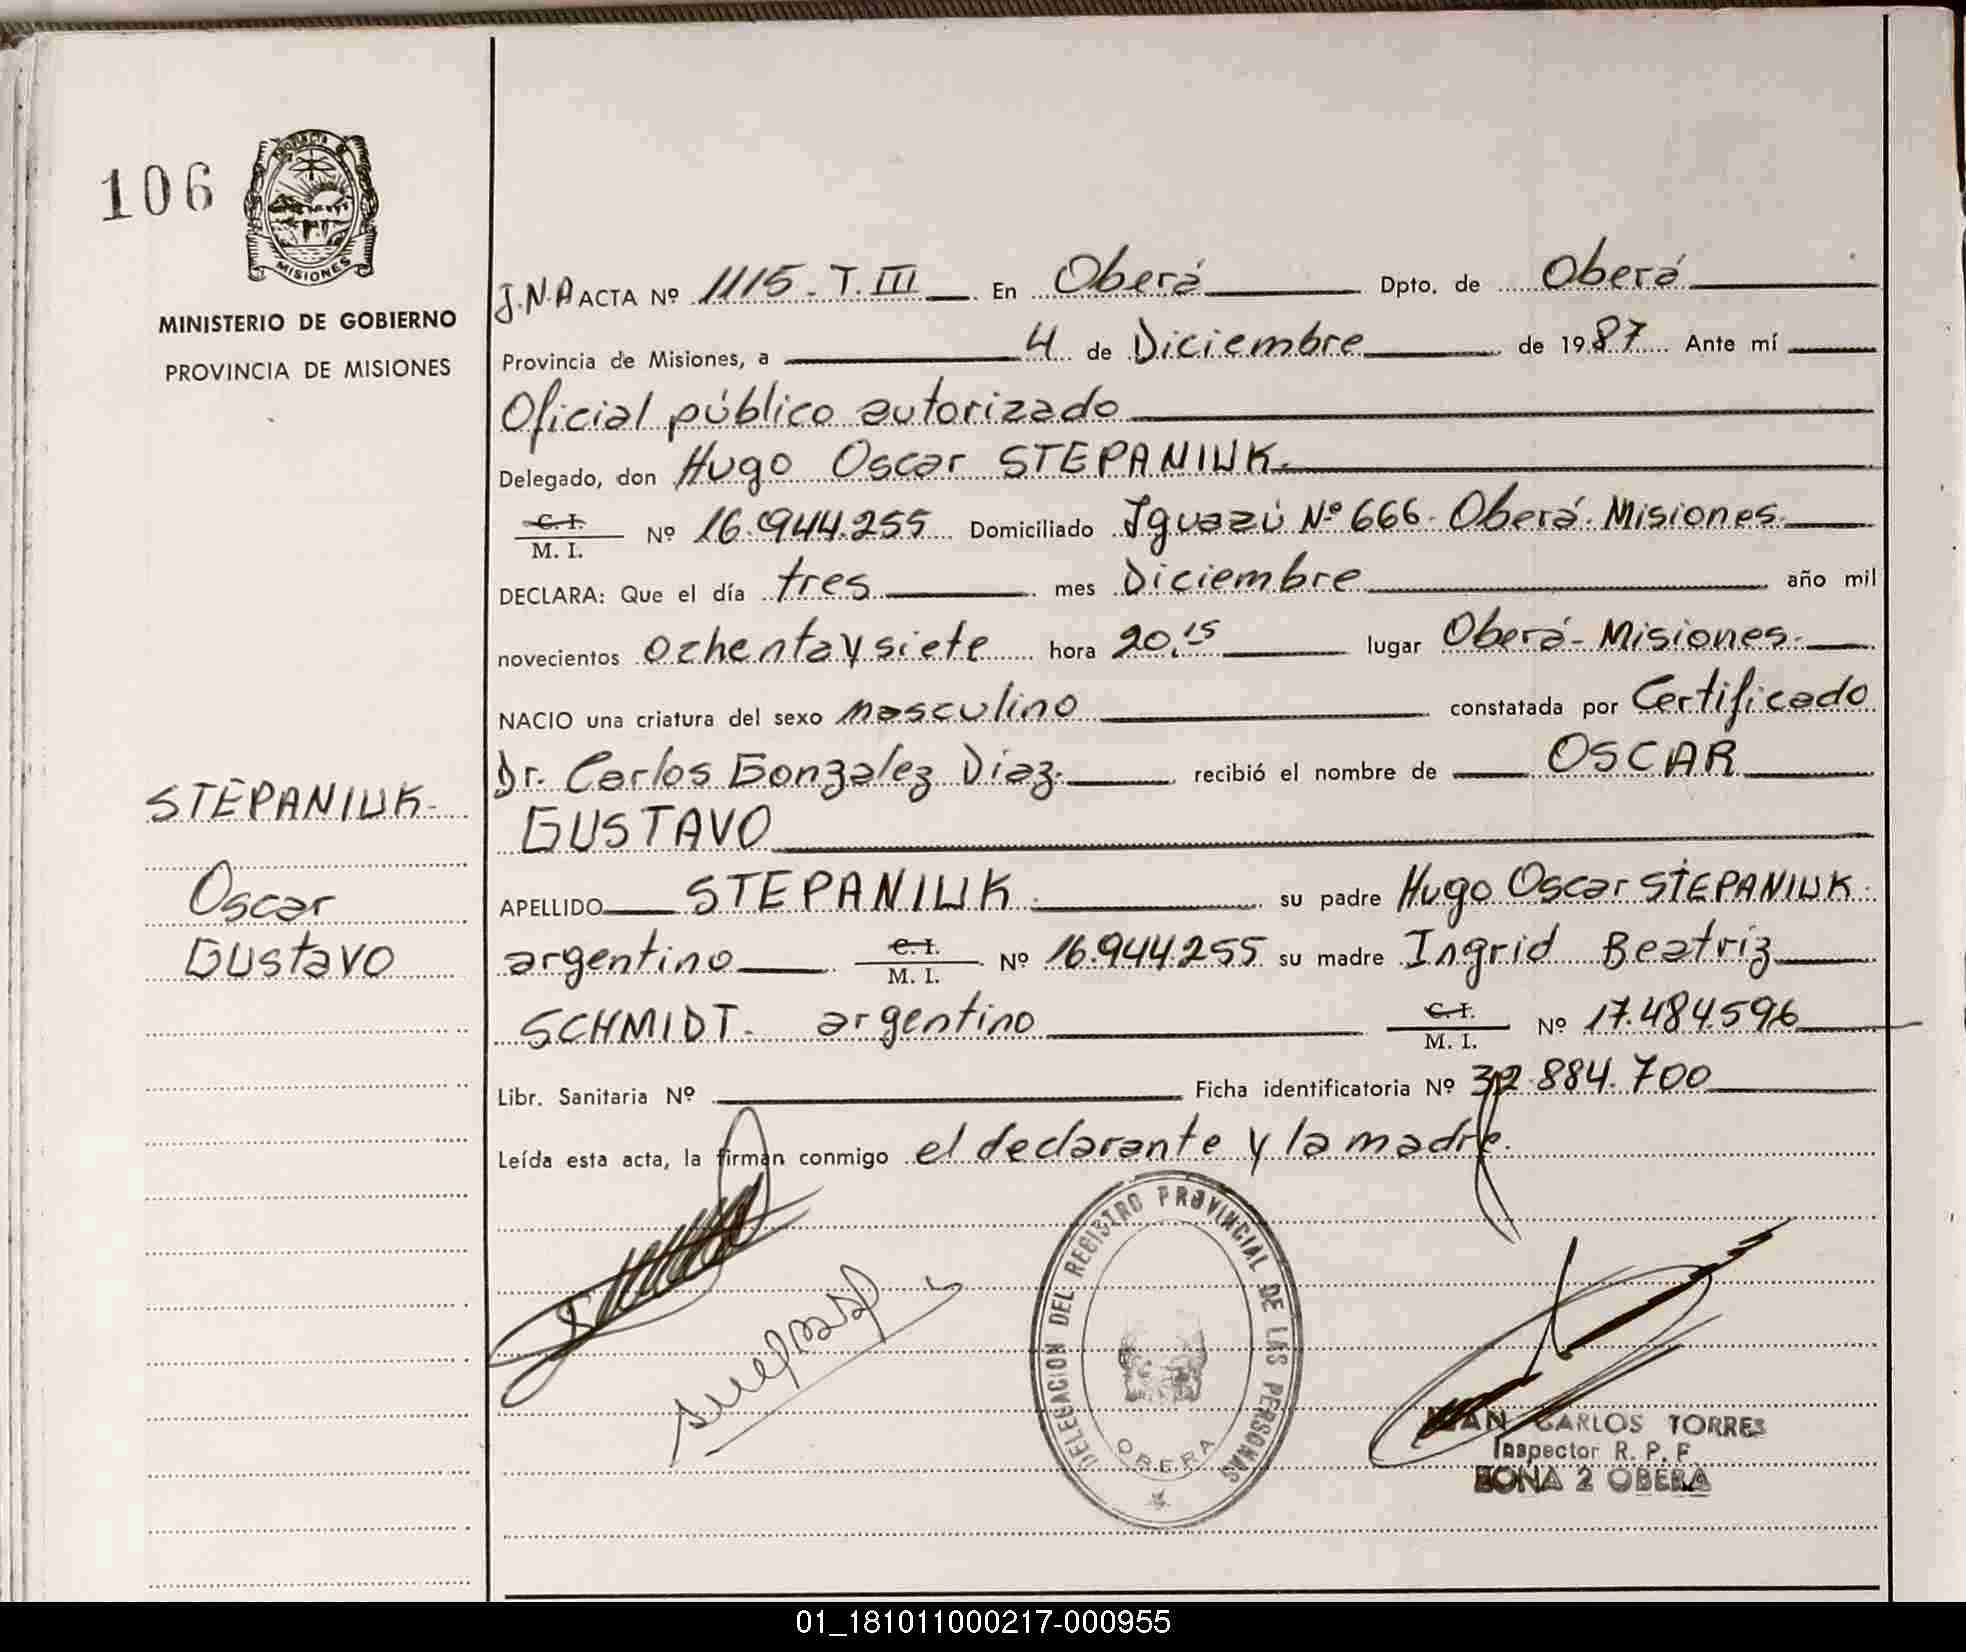 106
PROVINCIA DE
MISIONES
MINISTERIO DE GOBIERNO
PROVINCIA DE MISIONES
STEPANIUK.
Oscar
Gustavo
J.N.A ACTA Nº 1115. T. III En Oberá Dpto. de Oberá
Provincia de Misiones, a 4 de Diciembre de 1987 Ante mí
Oficial público autorizado
Delegado, don Hugo Oscar STEPANIUK.
C. I.
M. I. Nº 16.944.255 Domiciliado Iguazú Nº 666. Oberá. Misiones.
DECLARA: Que el día tres mes Diciembre año mil
novecientos ochenta y siete hora 20,15 lugar Oberá - Misiones.
NACIO una criatura del sexo masculino constatada por Certificado
Dr. Carlos Gonzalez Diaz. recibió el nombre de OSCAR
GUSTAVO
APELLIDO STEPANIUK. su padre Hugo Oscar STEPANIUK.
argentino C. I. M. I. Nº 16.944.255 su madre Ingrid Beatriz
SCHMIDT. argentino C. I. M. I. Nº 17.484.596
Libr. Sanitaria Nº Ficha identificatoria Nº 32.884.700
Leída esta acta, la firman conmigo el declarante y la madre.
DELEGACION DEL REGISTRO PROVINCIAL DE LAS PERSONAS
OBERA
JUAN CARLOS TORRES
Inspector R. P. P.
ZONA 2 OBERA
01_181011000217-000955